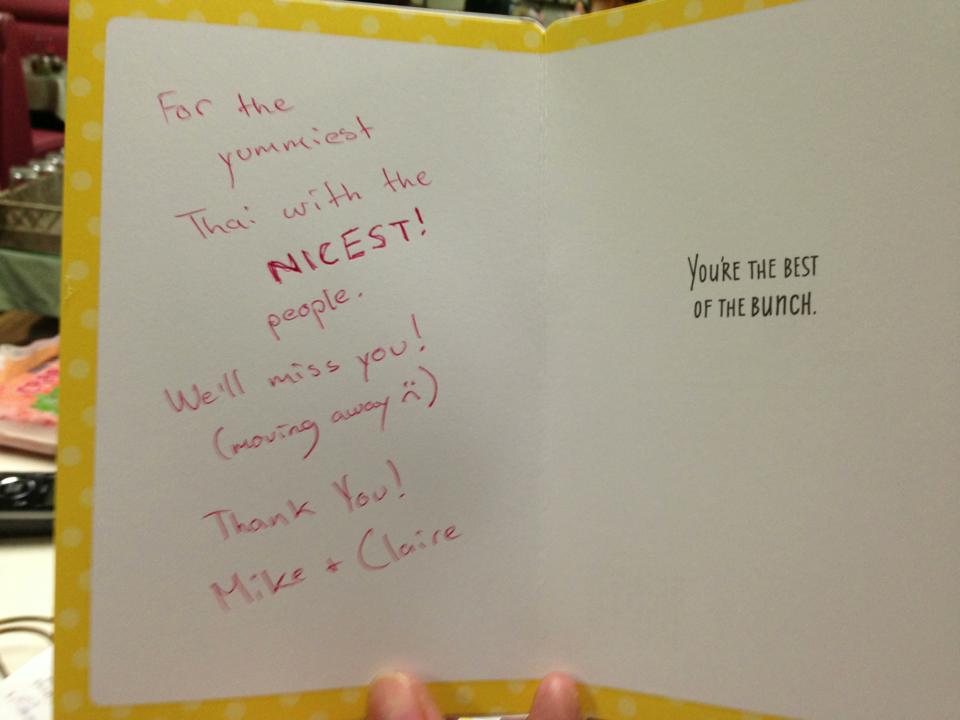 For the
yummiest
Thai with the
NICEST!
people.
We'll miss you!
(moving away :()
Thank You!
Mike + Claire
YOU'RE THE BEST
OF THE BUNCH.